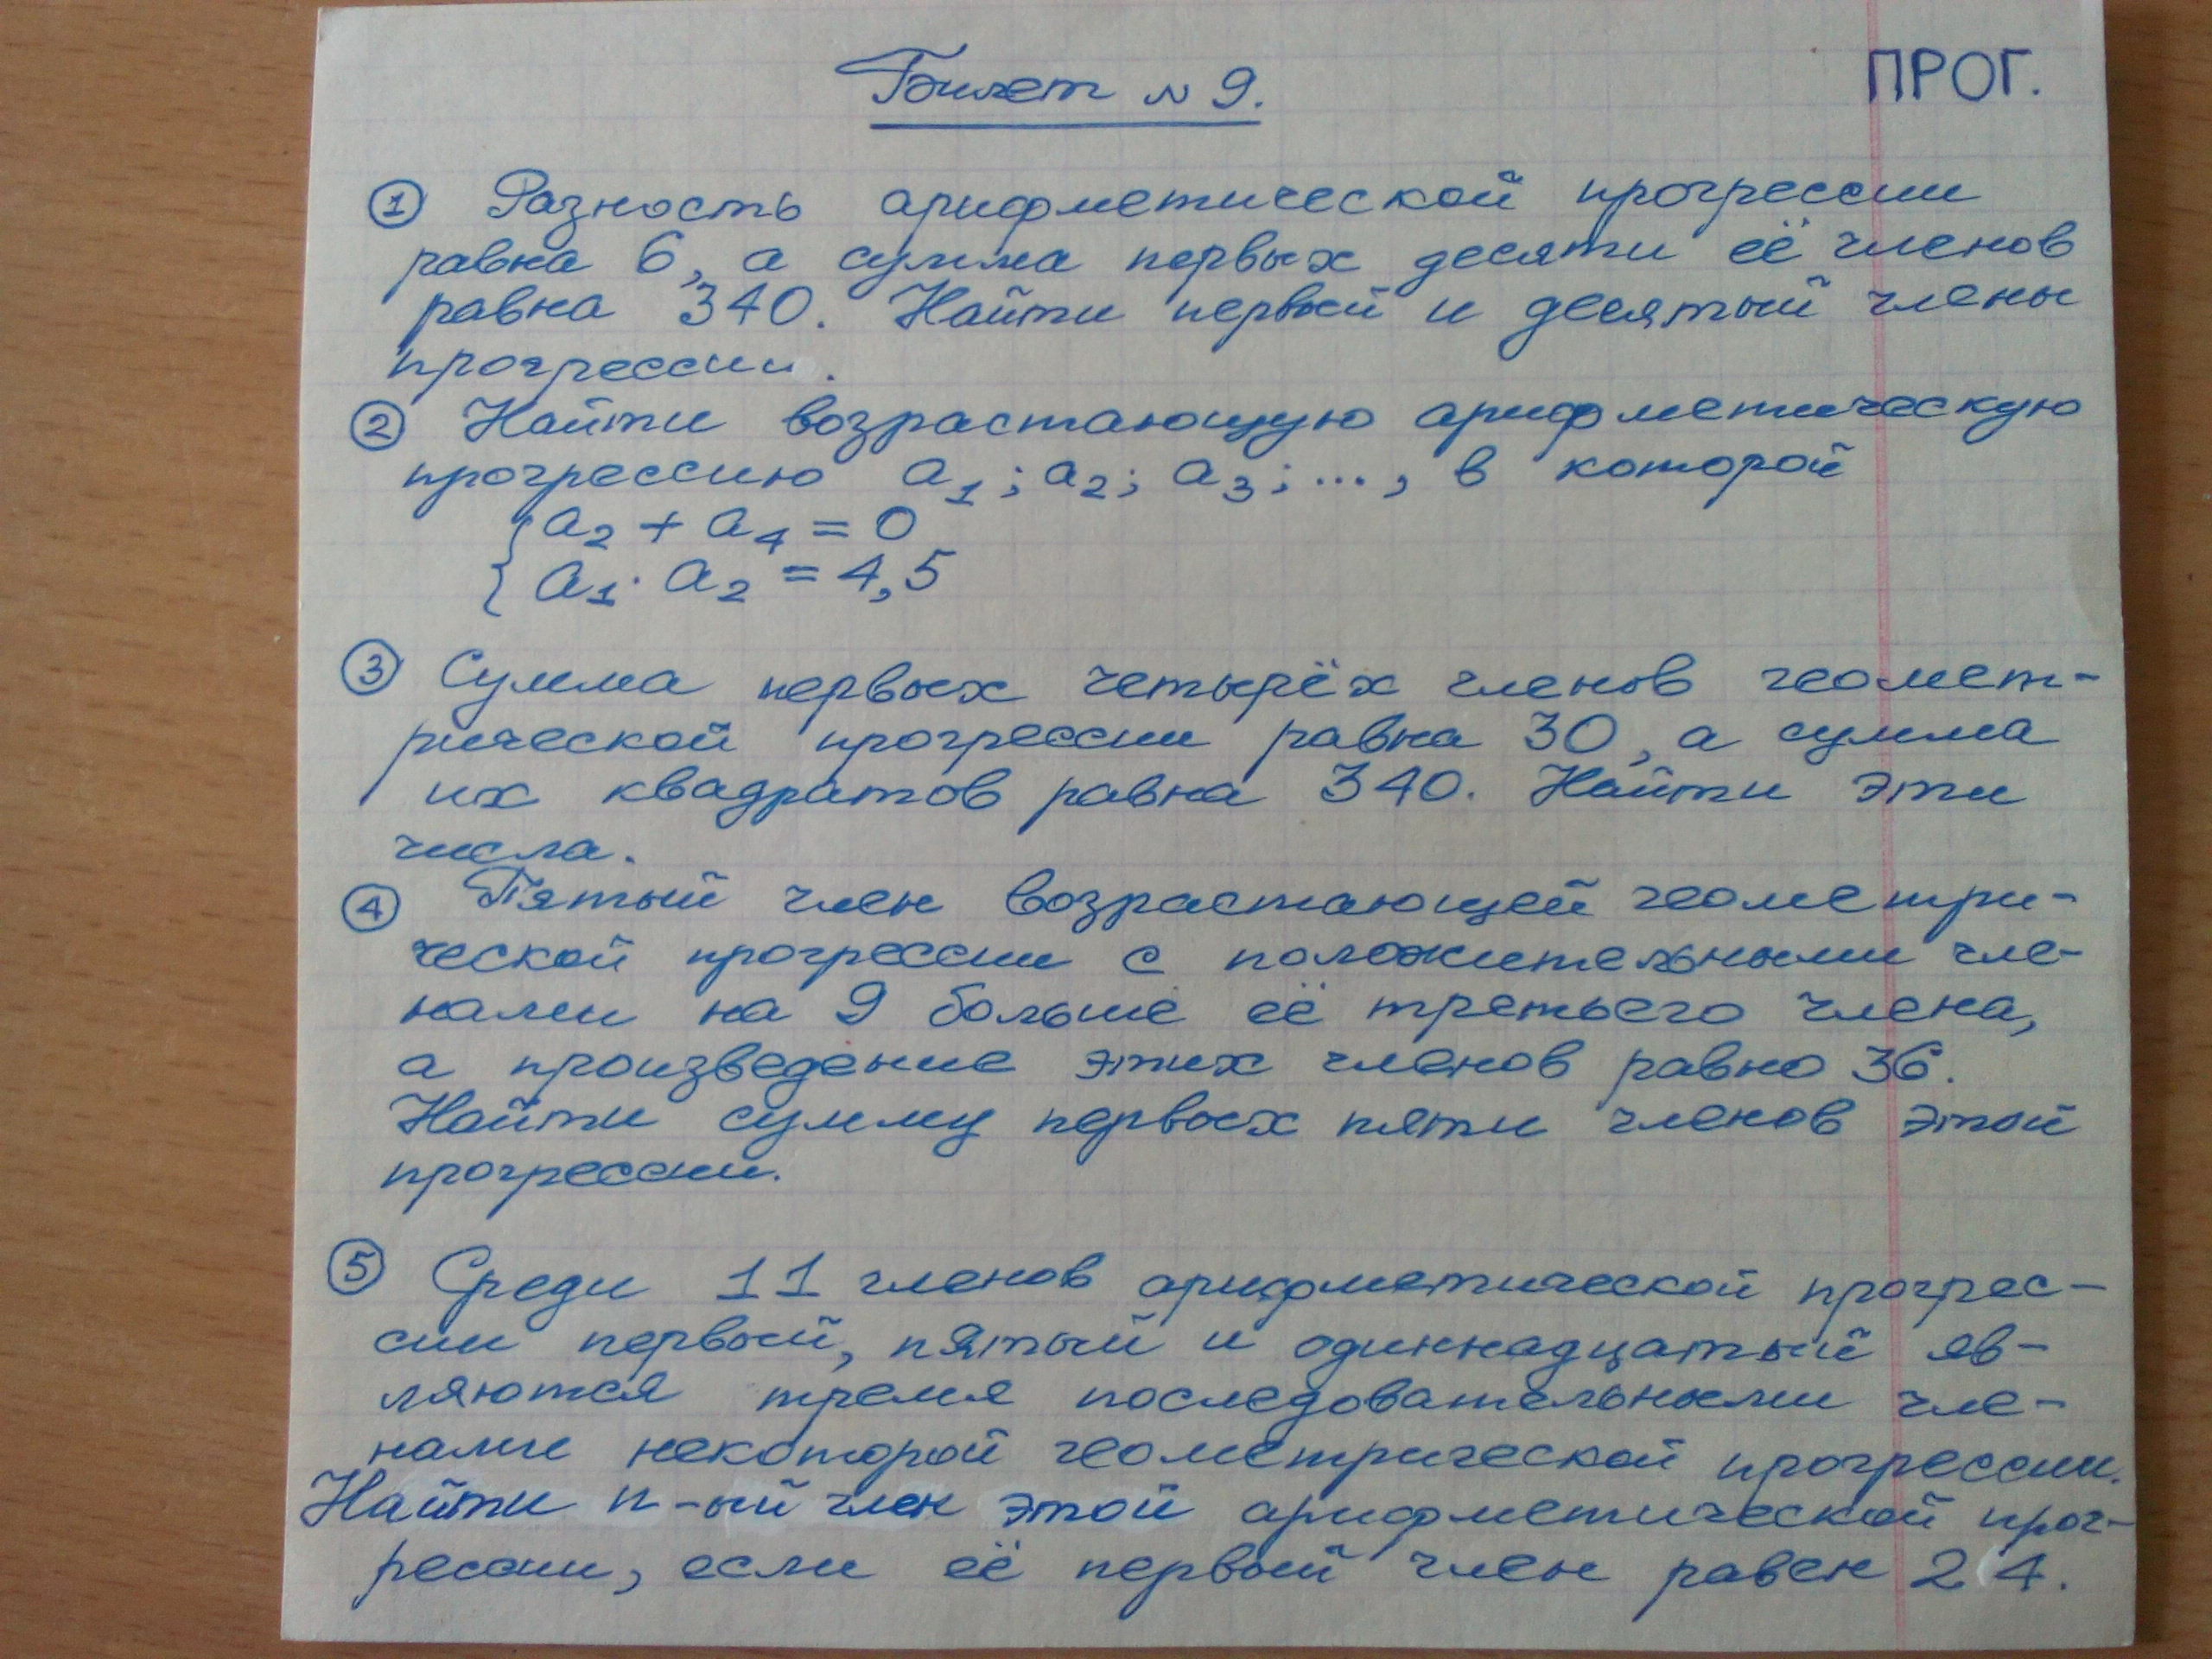 Билет №9.
ПРОГ.
① Разность арифметической прогрессии
равна 6, а сумма первых десяти её членов
равна 340. Найти первый и десятый члены
прогрессии.
② Найти возрастающую арифметическую
прогрессию a₁; a₂; a₃; ..., в которой
{ a₂ + a₄ = 0
{ a₁ · a₂ = 4,5
③ Сумма первых четырёх членов геомет-
рической прогрессии равна 30, а сумма
их квадратов равна 340. Найти эти
числа.
④ Пятый член возрастающей геометри-
ческой прогрессии с положительными чле-
нами на 9 больше её третьего члена,
а произведение этих членов равно 36.
Найти сумму первых пяти членов этой
прогрессии.
⑤ Среди 11 членов арифметической прогрес-
сии первый, пятый и одиннадцатый яв-
ляются тремя последовательными чле-
нами некоторой геометрической прогрессии.
Найти n-ый член этой арифметической прог-
рессии, если её первый член равен 24.